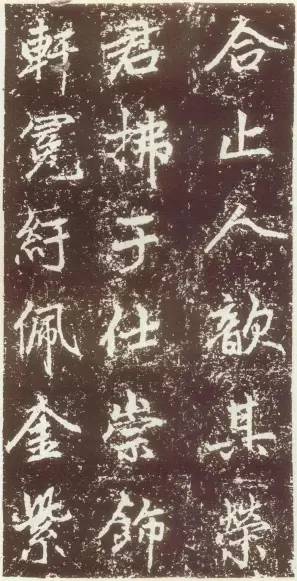 合止人歆其榮
君拂于仕崇飾
軒冕紆佩金紫